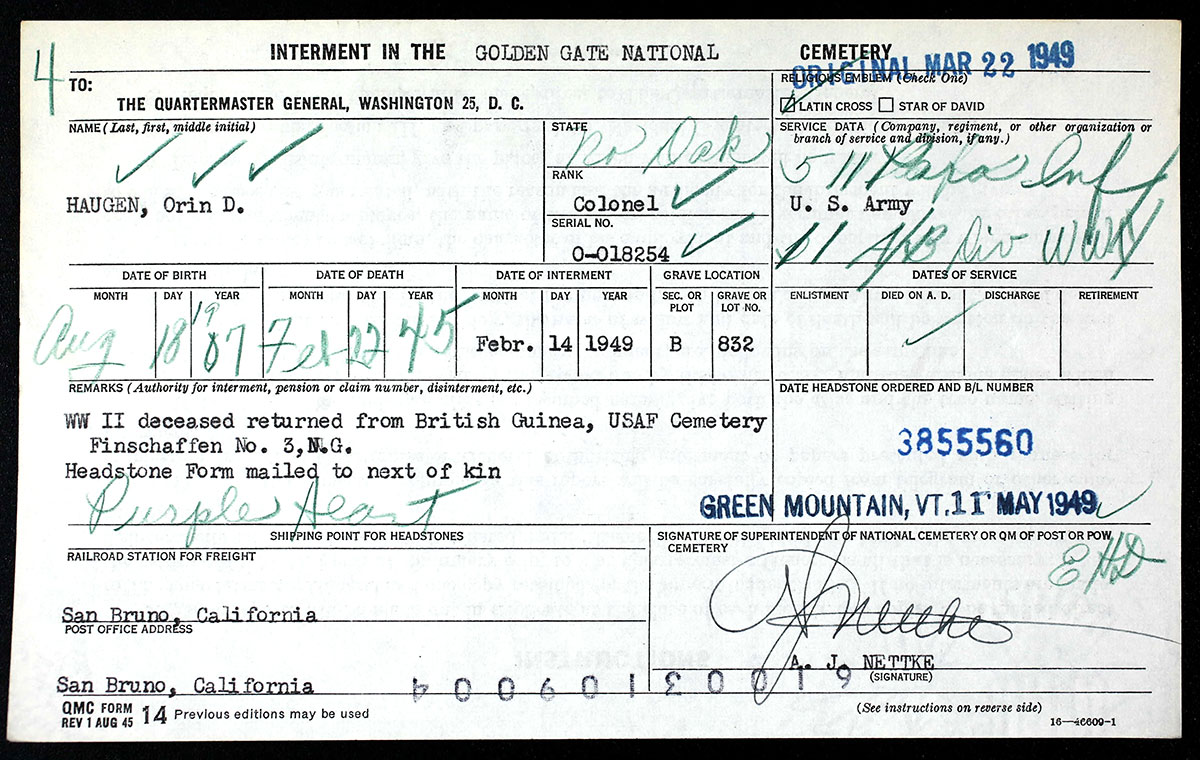 4
INTERMENT IN THE GOLDEN GATE NATIONAL CEMETERY
ORIGINAL MAR 22 1949
TO:
THE QUARTERMASTER GENERAL, WASHINGTON 25, D. C.
RELIGIOUS EMBLEM (Check One)
LATIN CROSS STAR OF DAVID
NAME (Last, first, middle initial)
HAUGEN, Orin D.
STATE
No Dak
RANK
Colonel
SERIAL NO.
O-018254
SERVICE DATA (Company, regiment, or other organization or
branch of service and division, if any.)
511 Para Inf
U. S. Army
11 A/B Div WW II
DATE OF BIRTH DATE OF DEATH DATE OF INTERMENT GRAVE LOCATION DATES OF SERVICE
MONTH DAY YEAR MONTH DAY YEAR MONTH DAY YEAR SEC. OR PLOT GRAVE OR LOT NO. ENLISTMENT DIED ON A. D. DISCHARGE RETIREMENT
Aug 18 1907 Feb 22 45 Febr. 14 1949 B 832
REMARKS (Authority for interment, pension or claim number, disinterment, etc.)
WW II deceased returned from British Guinea, USAF Cemetery
Finschaffen No. 3, N.G.
Headstone Form mailed to next of kin
Purple Heart
DATE HEADSTONE ORDERED AND B/L NUMBER
3855560
GREEN MOUNTAIN, VT. 11 MAY 1949
SHIPPING POINT FOR HEADSTONES
RAILROAD STATION FOR FREIGHT
San Bruno, California
POST OFFICE ADDRESS
San Bruno, California
SIGNATURE OF SUPERINTENDENT OF NATIONAL CEMETERY OR QM OF POST OR POW
CEMETERY
EHD
A J Nettke
A. J. NETTKE
(SIGNATURE)
QMC FORM
REV 1 AUG 45 14 Previous editions may be used
(See instructions on reverse side)
16—46609-1